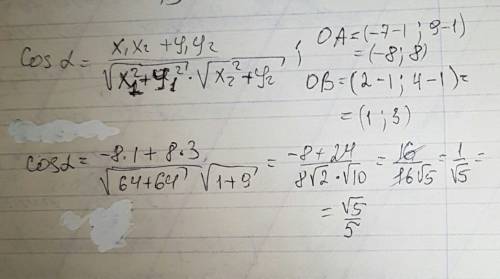 cos α = (x₁x₂ + y₁y₂) / (√(x₁² + y₁²) · √(x₂² + y₂²)) ;
OA = (-7-1 ; 9-1)
= (-8; 8)
OB = (2-1; 4-1) =
= (1 ; 3)
cos α = (-8·1 + 8·3) / (√(64+64) √(1+9)) = (-8+24) / (8√2·√10) = 16 / (16√5) = 1/√5 =
= √5/5